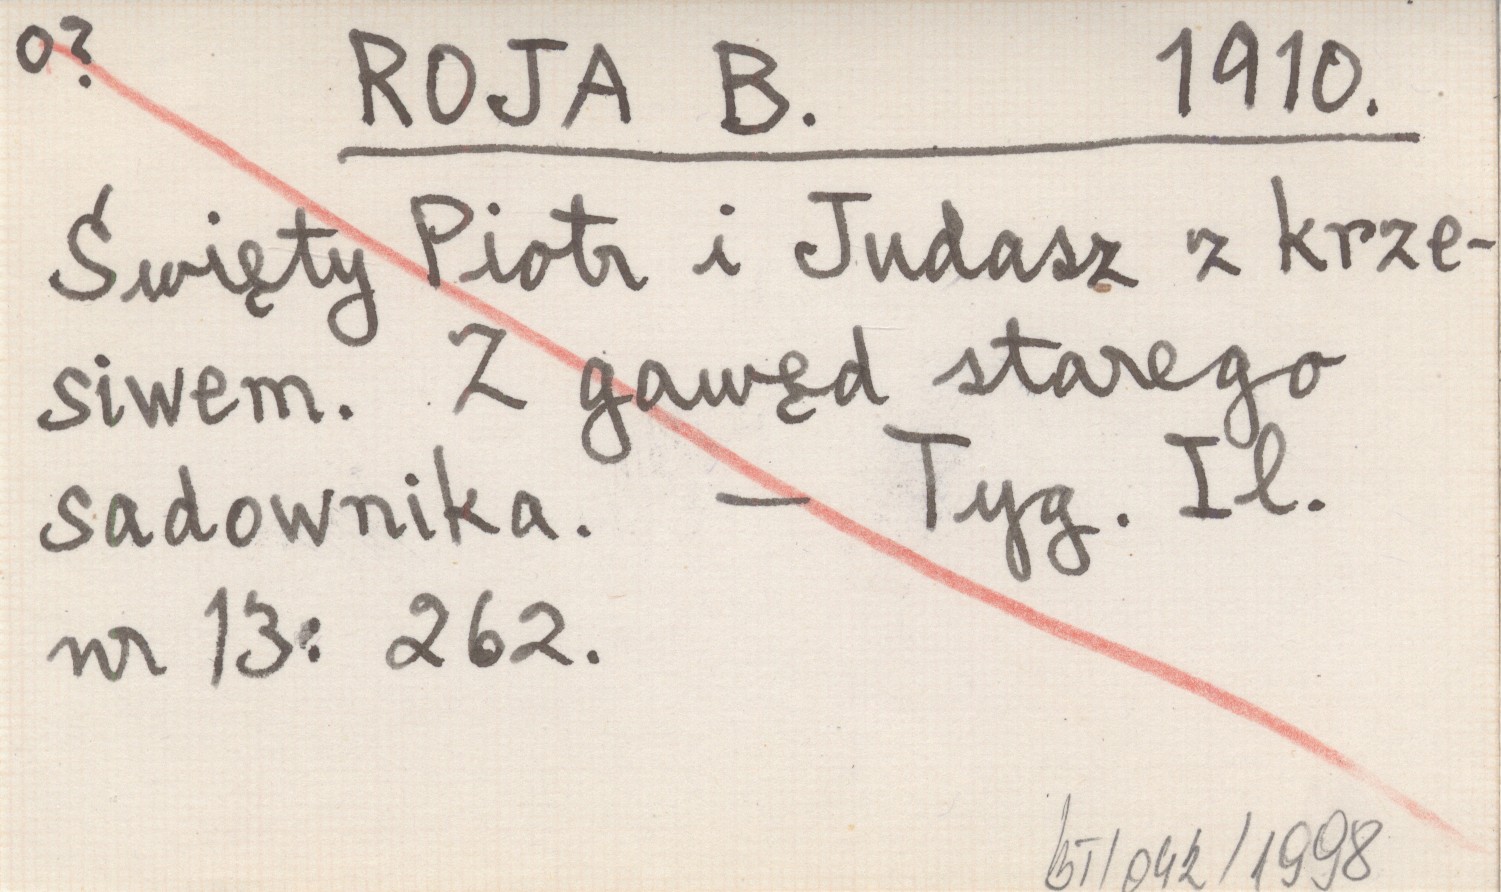 o? ROJA B. 1910.
Święty Piotr i Judasz z krze-
siwem. Z gawęd starego
sadownika. — Tyg. Il.
nr 13: 262.
BT/042/1998